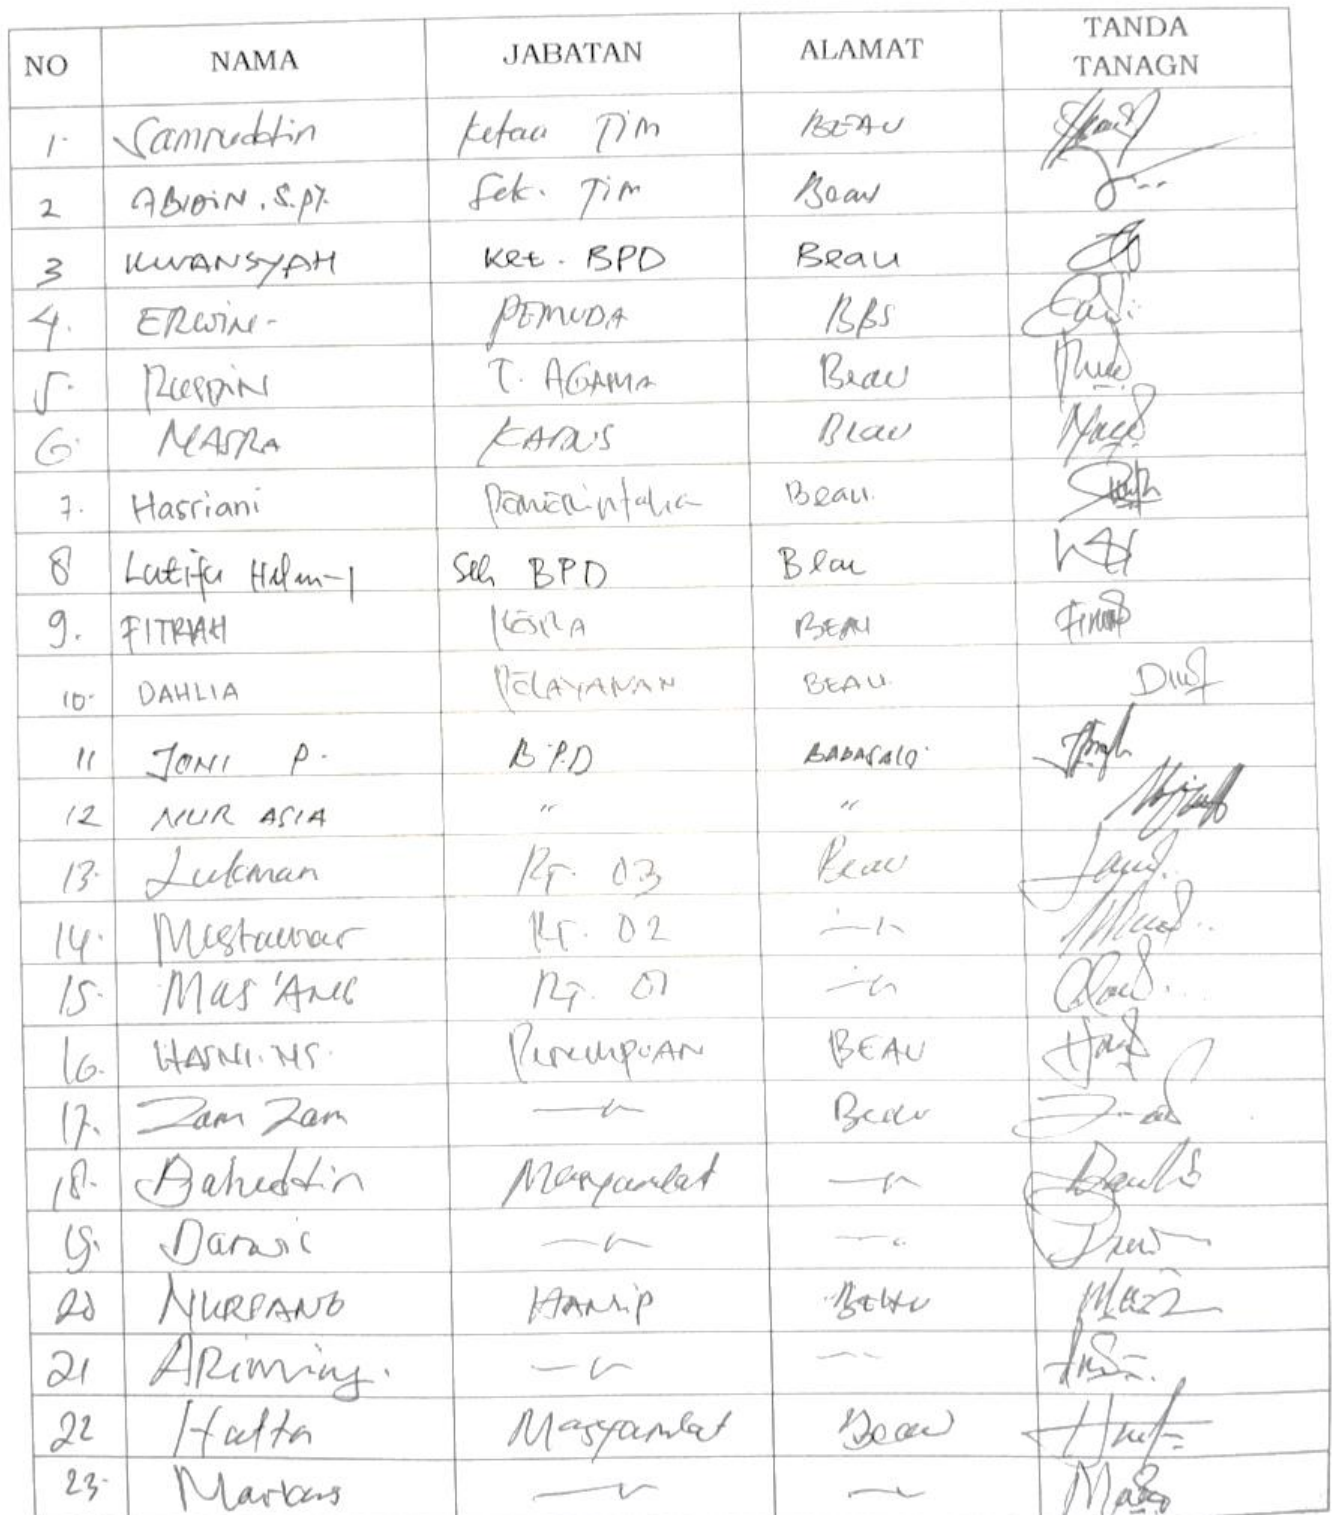 NO NAMA JABATAN ALAMAT TANDA TANAGN
1. Samruddin Ketua Tim BEAU
2 ABIDIN, S.Pi. Sek. Tim Beau
3 KURANSYAH Ket. BPD Beau
4. ERWIN- PEMUDA BBS
5. RUSDIN T. AGAMA Beau
6. MASRA KADUS Beau
7. Hasriani Beau.
8 Latifa BPD Beau
9. FITRIAH KESRA BEAU
10. DAHLIA PELAYANAN BEAU
11 JONI P. BPD BABASALO
12 NUR ASIA " "
13. Lukman RT. 03 Beau
14. Mustawar RT. 02 -"-
15. Mas'Ang RT. 01 -"-
16. HASNI. MS. Perempuan BEAU
17. Zam Zam -"- Beau
18. Bahuddin Masyarakat -"-
19. Darwis -"- -"-
20 HANSIP BEAU
21 -"- -"-
22 Hatta Masyarakat Beau
23. Markus -"- -"-